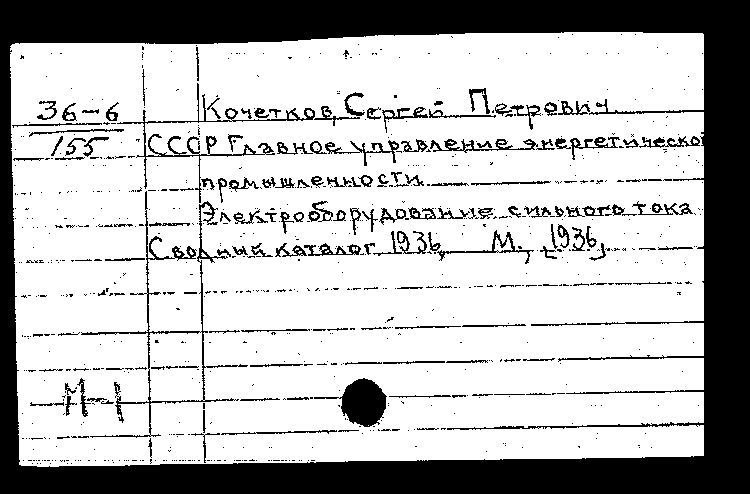 36-6 Кочетков, Сергей Петрович.
155 СССР Главное управление энергетической
промышленности.
Электрооборудование сильного тока.
Сводный каталог 1936, М., [1936].
М-1